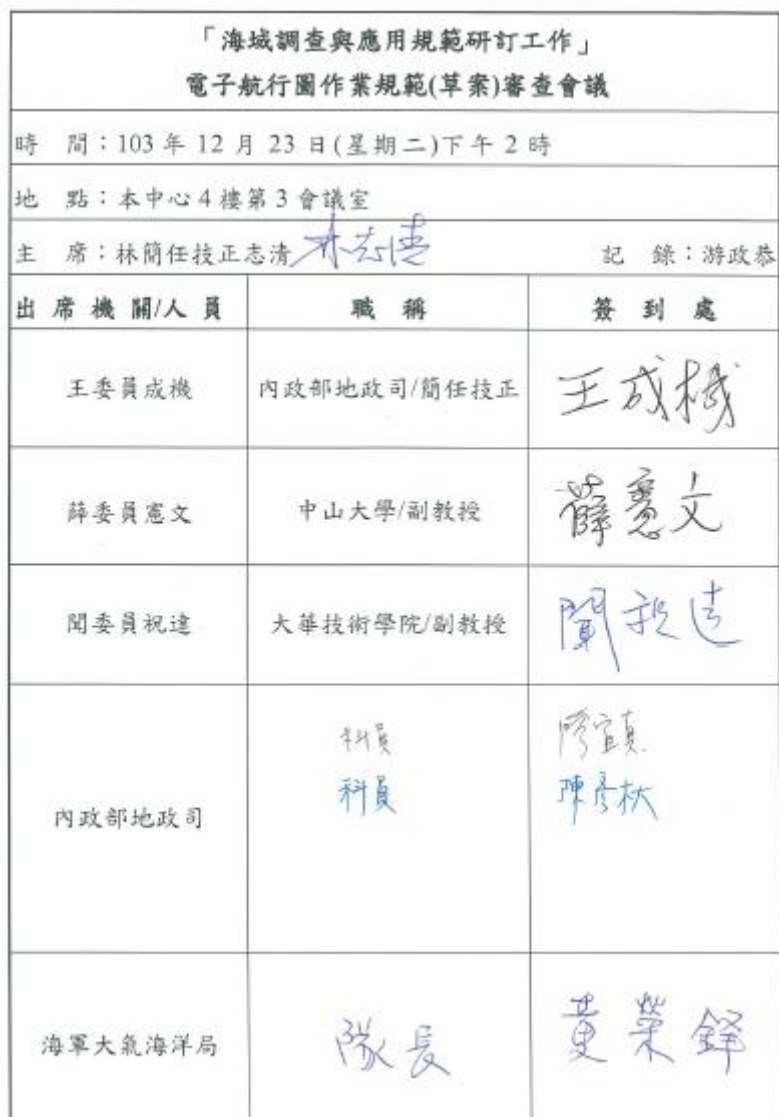 「海域調查與應用規範研訂工作」
電子航行圖作業規範(草案)審查會議
時 間：103 年 12 月 23 日(星期二)下午 2 時
地 點：本中心 4 樓第 3 會議室
主 席：林簡任技正志清 林志清 記 錄：游政恭
出 席 機 關/人 員 職 稱 簽 到 處
王委員成機 內政部地政司/簡任技正 王成機
薛委員憲文 中山大學/副教授 薛憲文
聞委員祝達 大華技術學院/副教授 聞祝達
科員 廖宜真
內政部地政司 科員 陳彥杕
海軍大氣海洋局 隊長 黃榮鋒